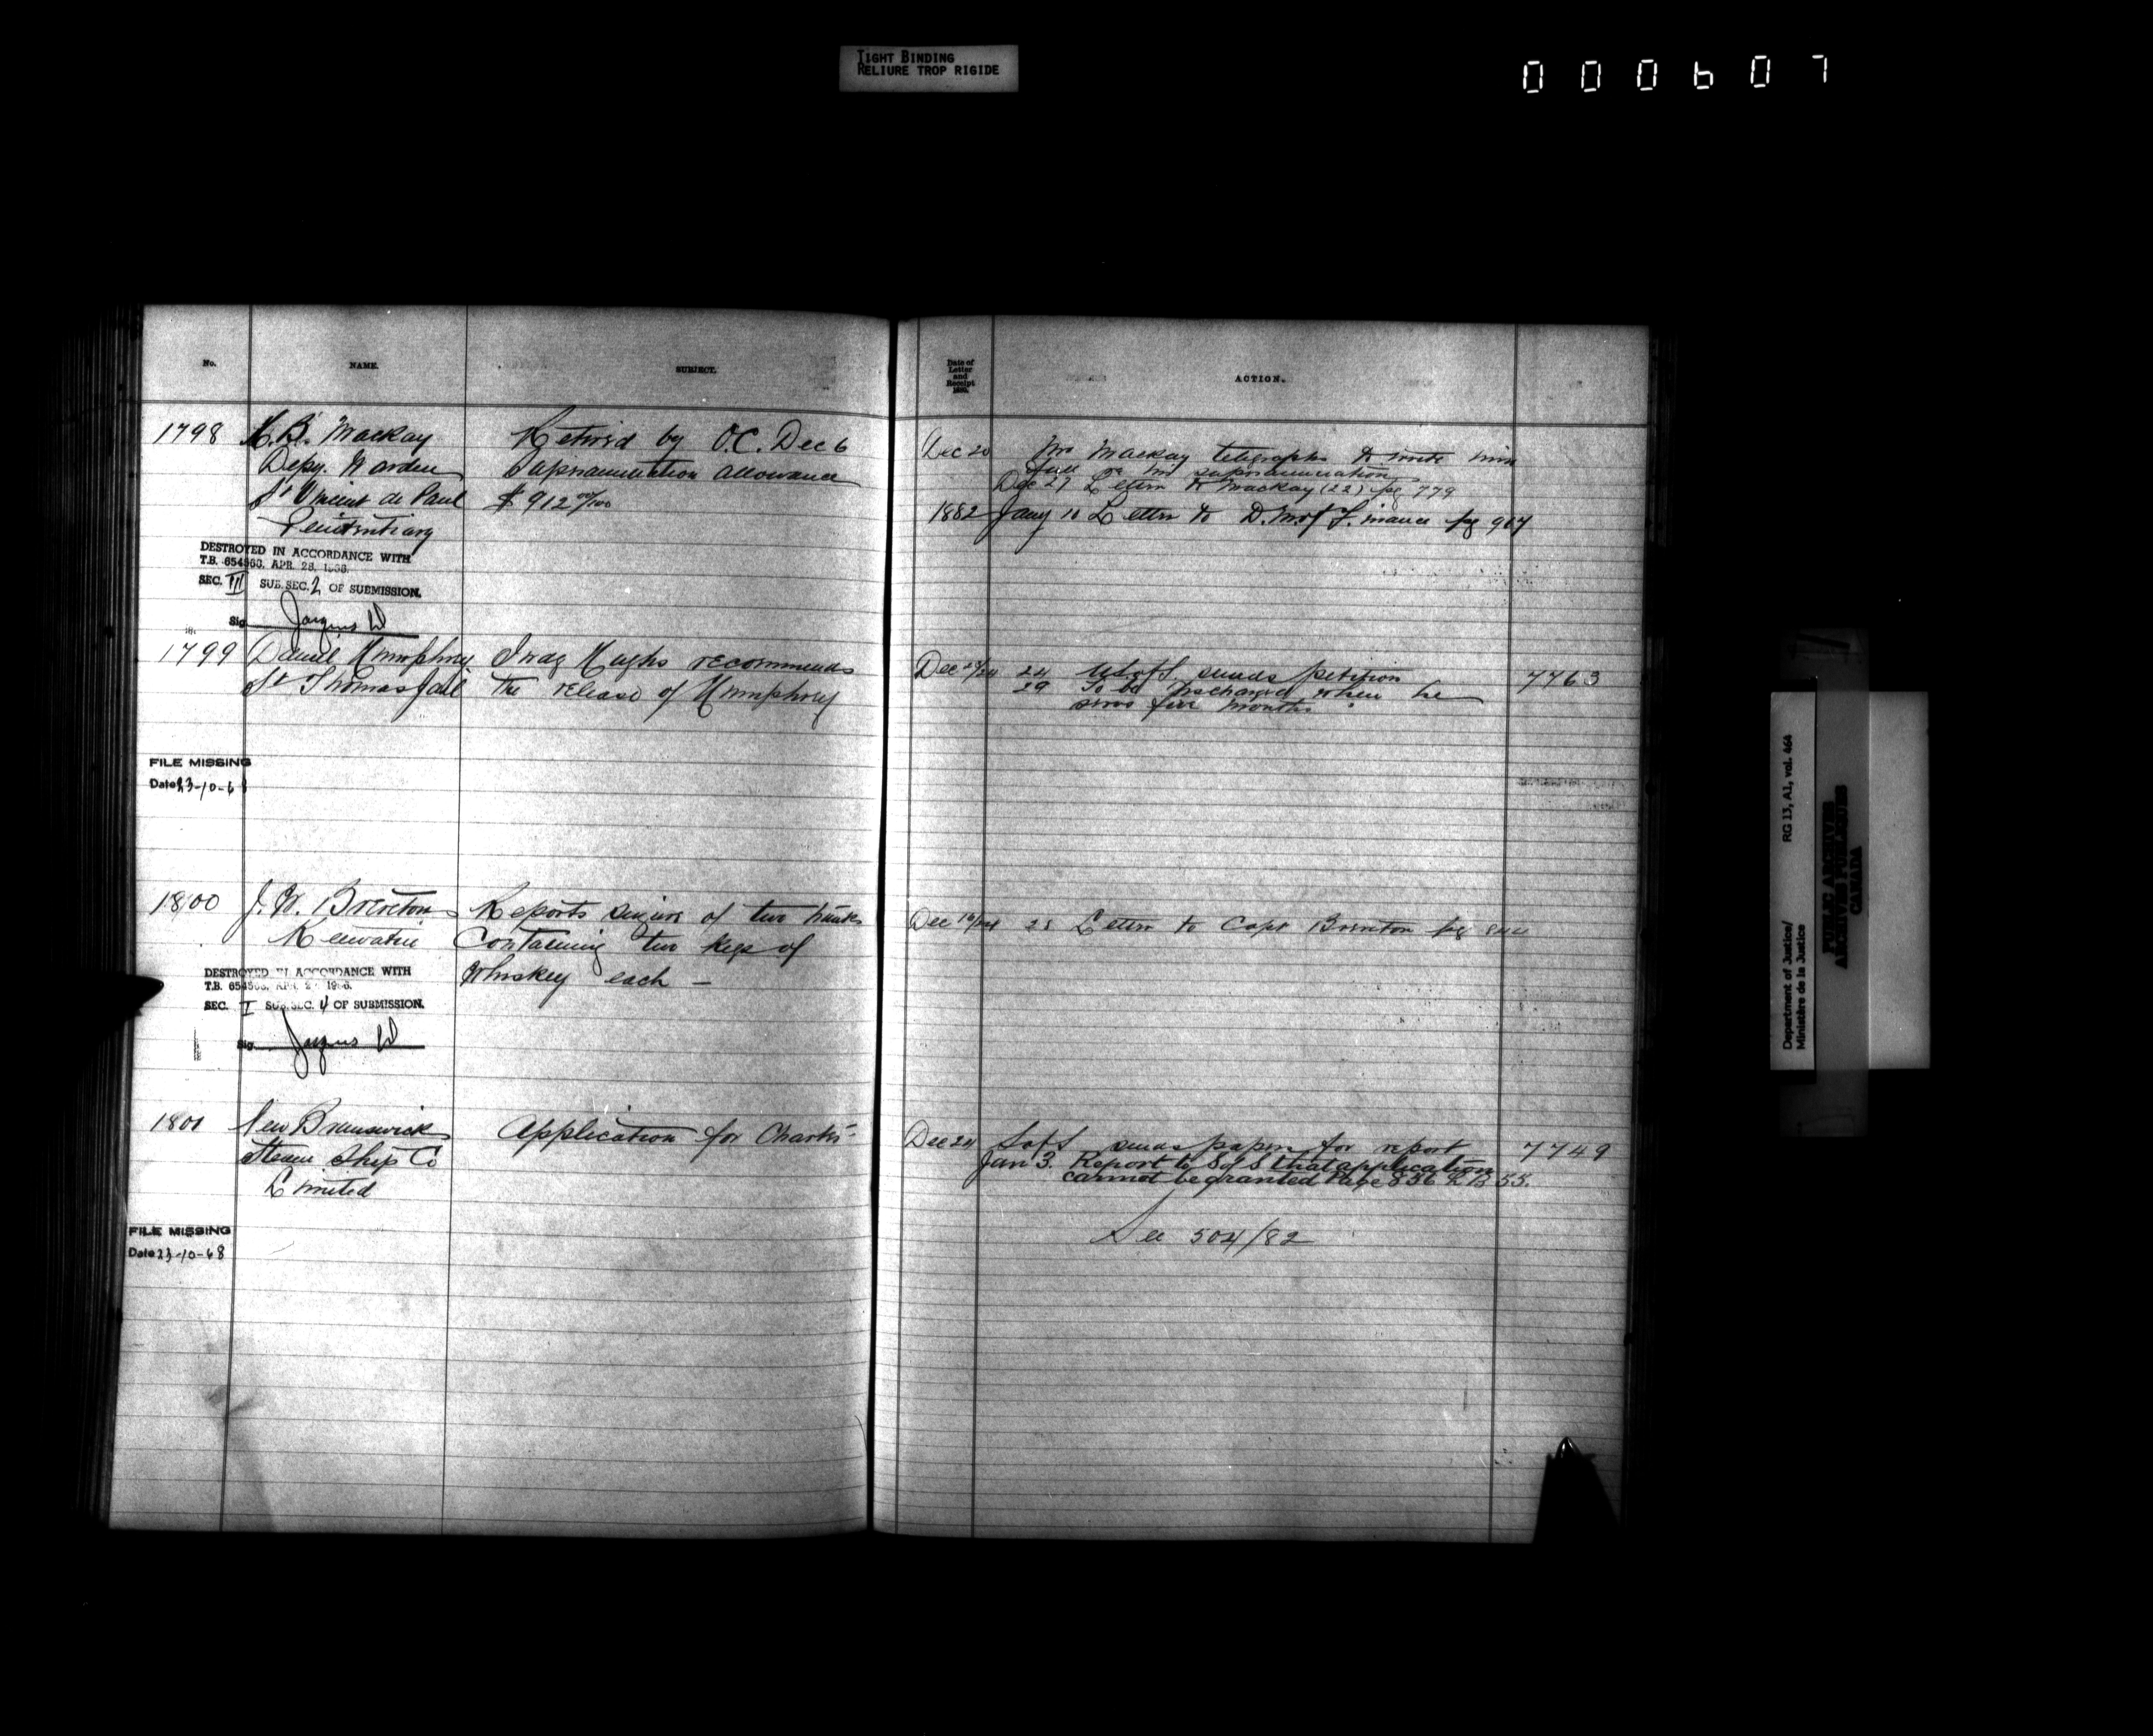 TIGHT BINDING
RELIURE TROP RIGIDE
000607
No.
NAME.
SUBJECT.
Date of
Letter
and
Receipt
ACTION.
1798
Mackay
Retired by O.C. Dec 6
Depy. Warden
Superannuation allowance
St Vincent de Paul
$912 00/100
Penitentiary
Dec 20
Mr Mackay telegraphs to write him
full re his superannuation
Dec 27 Letter to Mackay (22) pg 779
1882 Jany 10 Letter to D. M of Finance pg 907
DESTROYED IN ACCORDANCE WITH
T.B. 654560, APR. 28, 1966.
SEC. III SUB.SEC. 2 OF SUBMISSION.
Sig
1799
Daniel Humphrey
Judg Hughs recommends
St Thomas Jail
the release of Humphrey
Dec 23/24
24 U S of S sends petition
7763
29 To be discharged when he
serves four months.
FILE MISSING
Date 23-10-68
1800
J. W. Brereton
Reports seizure of two trunks
Keewatin
Containing two kegs of
Whiskey each —
Dec 16/24
28 Letter to Capt Brereton pg
DESTROYED IN ACCORDANCE WITH
T.B. 654560, APR. 28 1966.
SEC. I SUB.SEC. 4 OF SUBMISSION.
Sig
1801
New Brunswick
Application for Charter
Steam Ship Co
Limited
Dec 24
S of S sends papers for report
7749
Jan 3. Report to S of S that application
cannot be granted Page 856 L B 55.
See 504/82
FILE MISSING
Date 23-10-68
Department of Justice/
Ministère de la Justice
RG 13, A1, vol. 464
PUBLIC ARCHIVES
ARCHIVES PUBLIQUES
CANADA